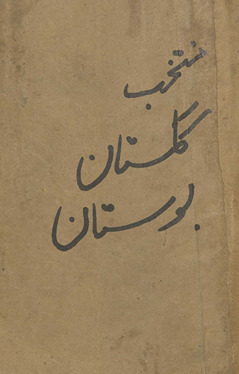 منتخب
گلستان
بوستان